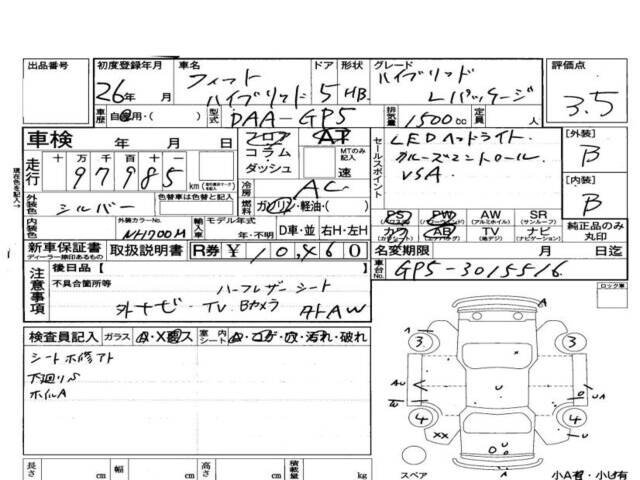 出品番号 初度登録年月 車名 ドア 形状 グレード 評価点
26年 月 フィット ハイブリッド 5 HB. ハイブリッド Lパッケージ 3.5
車歴 自家用・( ) 型式 DAA-GP5 排気量 1500cc 定員 人
車検 年 月 日 フロア AT
コラム MTのみ記入
ダッシュ 速
走行 十 万 千 百 十 一
97985 km
セールスポイント
LEDヘッドライト.
クルーズコントロール
VSA.
[外装] B
[内装] B
冷房 AC
外装色 シルバー 色替車は色替と記入 燃料 ガソリン・軽油・( )
内装色 外装カラーNo. NH700M 輸入車 モデル年式 年・不明 D車・並 右H・左H
PS PW AW (アルミホイル) SR (サンルーフ)
カワ AB TV (地デジ) ナビ (ナビゲーション)
純正品のみ丸印
新車保証書 ディーラー捺印あるもの 取扱説明書 R券 ¥10,460 名変期限 月 日迄
車台No. GP5-3015516
注意事項 後日品[ ]
不具合箇所等 ハーフレザーシート
外ナビ・TV.Bカメラ 外AW
ロック車
検査員記入 ガラス 室内 シート 汚れ・破れ
シートホ修アト
下廻りS
ホイルA
A
3 3
AU U UA
4 4
XX U U
スペア 小A有・小U有
長さ cm 幅 cm 高さ cm 積載量 kg
現在色を記入→